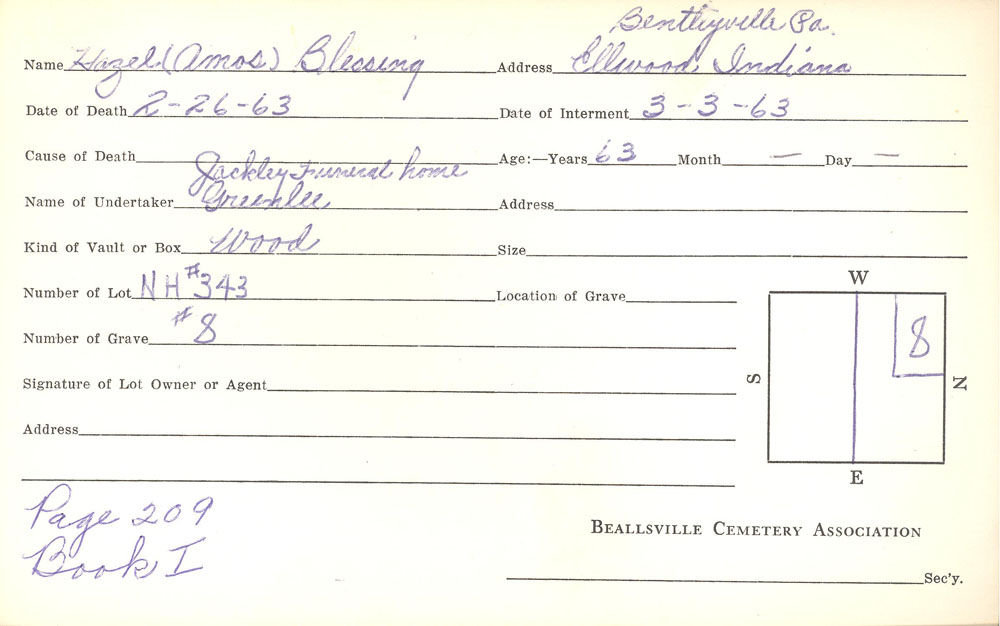 Bentleyville Pa.
Name Hazel (Amos) Blessing Address Ellwood, Indiana
Date of Death 2-26-63 Date of Interment 3-3-63
Cause of Death Age:—Years 63 Month — Day —
Jackley Funeral home
Name of Undertaker Greenlee Address
Kind of Vault or Box Wood Size
Number of Lot NH #343 Location of Grave
W
Number of Grave #8
8
S N
Signature of Lot Owner or Agent
Address
E
Page 209
Book I
BEALLSVILLE CEMETERY ASSOCIATION
Sec'y.